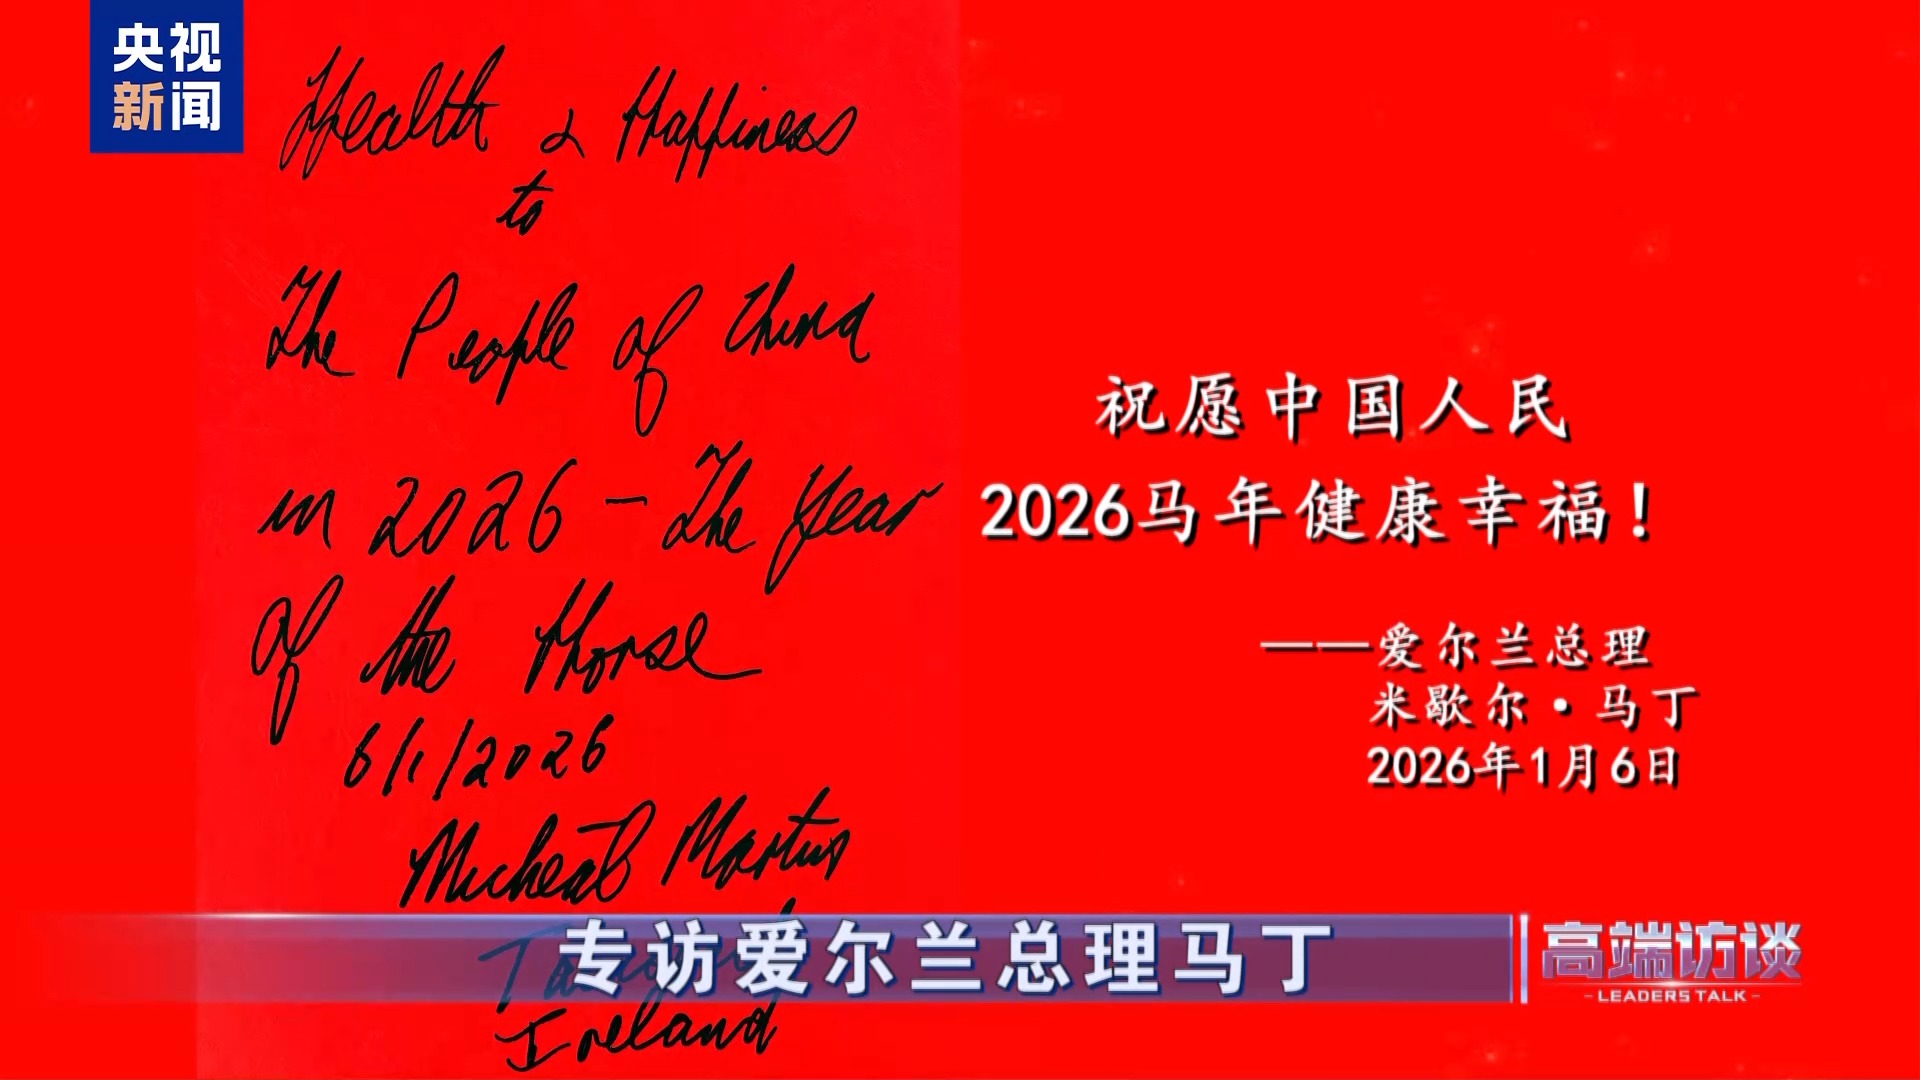 央视
新闻
Health & Happiness
to
The People of China
in 2026 - The Year
of the Horse
6/1/2026
Micheál Martin
Ireland
祝愿中国人民
2026马年健康幸福!
——爱尔兰总理
米歇尔·马丁
2026年1月6日
专访爱尔兰总理马丁
高端访谈
- LEADERS TALK -